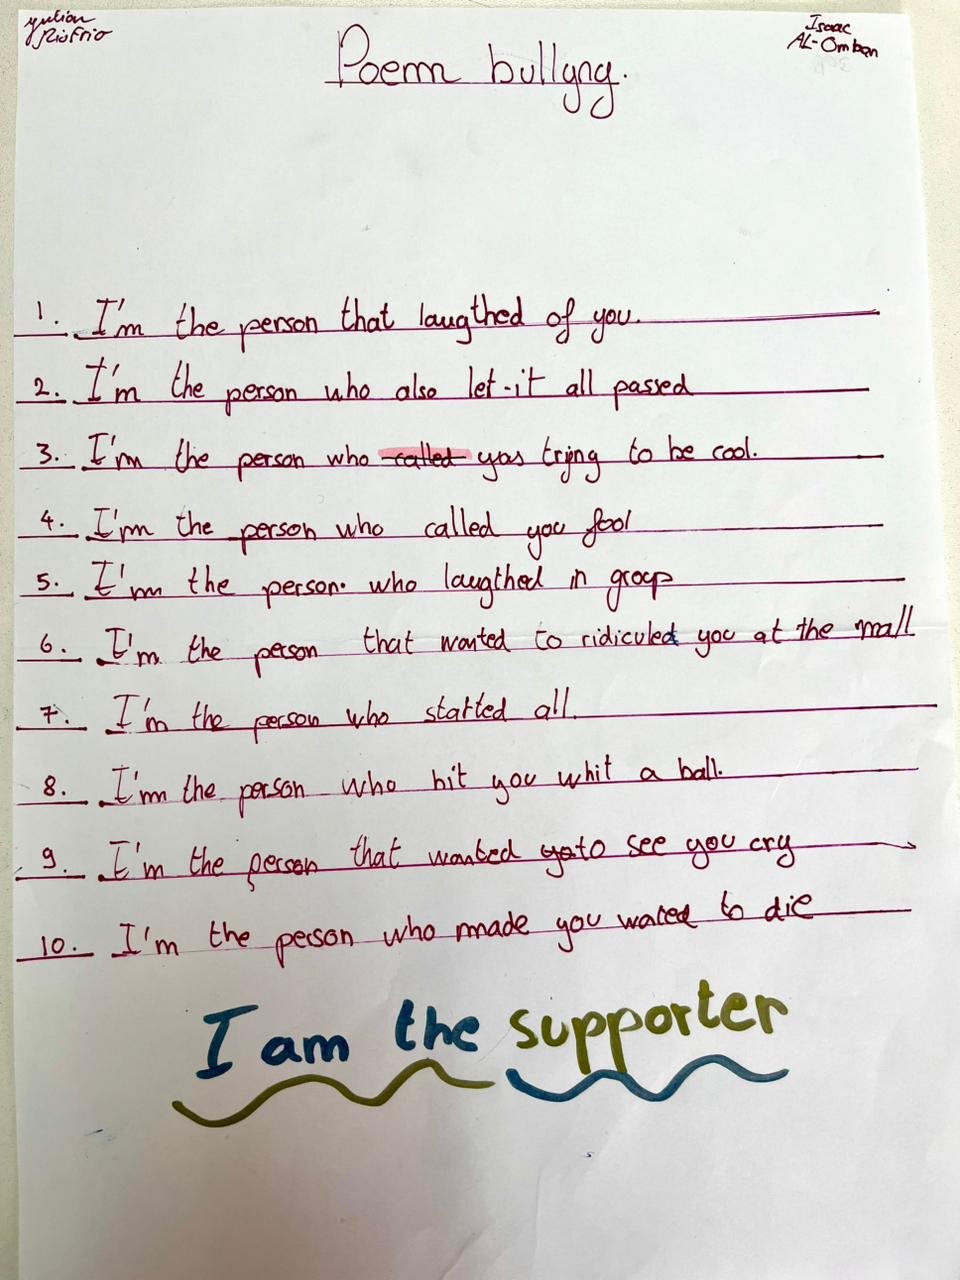 yulian
RioFrio
Isaac
AL-Omban
Poem bullyng.
1. I'm the person that laugthed of you.
2. I'm the person who also let-it all passed
3. I'm the person who called yas trijng to be cool.
4. I'm the person who called you fool
5. I'm the person. who laugthed in groop
6. I'm the person that wanted to ridiculed you at the mall
7. I'm the person who started all.
8. I'm the person who hit you whit a ball.
9. I'm the person that wanted yoto see you cry
10. I'm the person who made you wated to die
I am the supporter